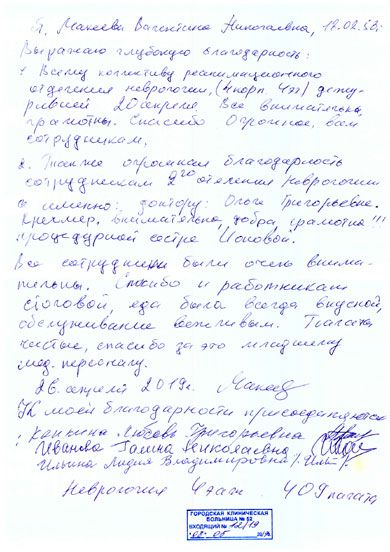 Я, Макеева Валентина Николаевна, 18.02.53г.
Выражаю глубокую благодарность:
1. Всему коллективу реанимационного
отделения неврологии, (4 корп. 4эт) дежу-
рившей 20 апреля. Все внимательны,
грамотны. Спасибо Огромное, вам
сотрудникам,
2. Также огромная благодарность
сотрудникам 2го отделения Неврологии
а именно: доктору: Ольге Григорьевне.
Кремлер, внимательна, добра, грамотна!!!
процедурной сестре Ионовой.
Все сотрудники были очень внима-
тельны. Спасибо и работникам
столовой, еда была всегда вкусной,
обслуживание вежливым. Палата
чистые, спасибо за это младшему
мед. персоналу.
26. апреля 2019г. Макеев
К моей благодарности присоединяются
: Конкина Любовь Григорьевна
Иванова Галина Николаевна
Ильина Лидия Владимировна
Неврология 4 этаж. 409 палата
ГОРОДСКАЯ КЛИНИЧЕСКАЯ
БОЛЬНИЦА № 52
ВХОДЯЩИЙ № 12/19
"02" 05 2019г.